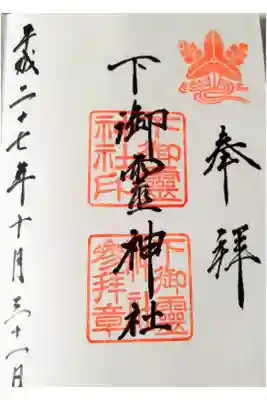 奉拝
下御靈神社
下御靈神社社印
下御靈神社参拝章
平成二十七年十月三十一日